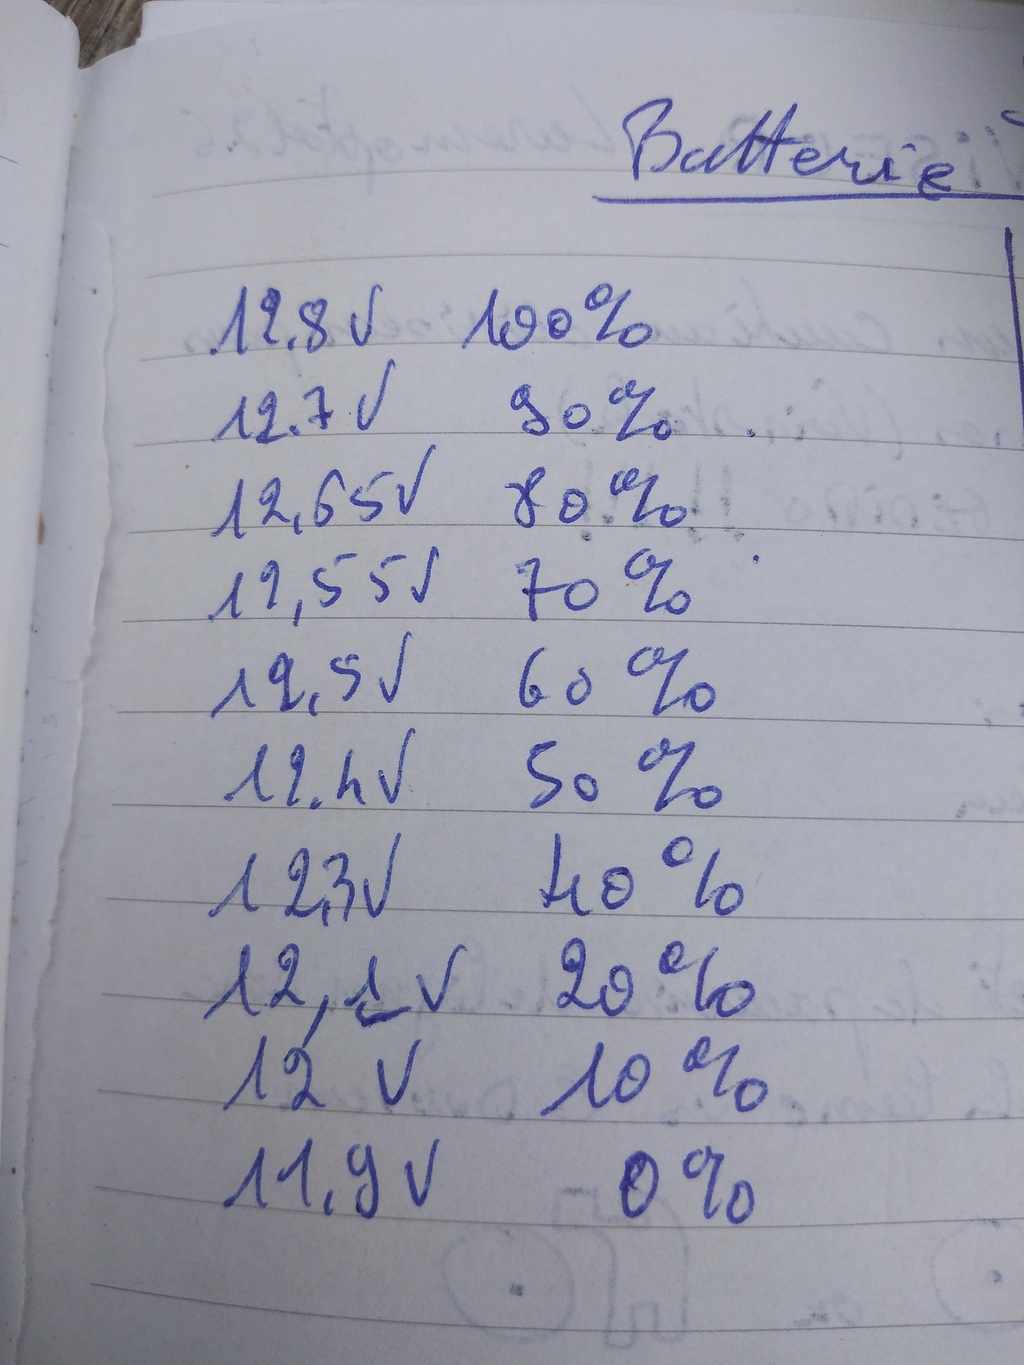 Batterie
12.8V 100%
12.7V 90%
12,65V 80%
12,55V 70%
12,5V 60%
12.4V 50%
12,3V 40%
12,1V 20%
12V 10%
11.9V 0%